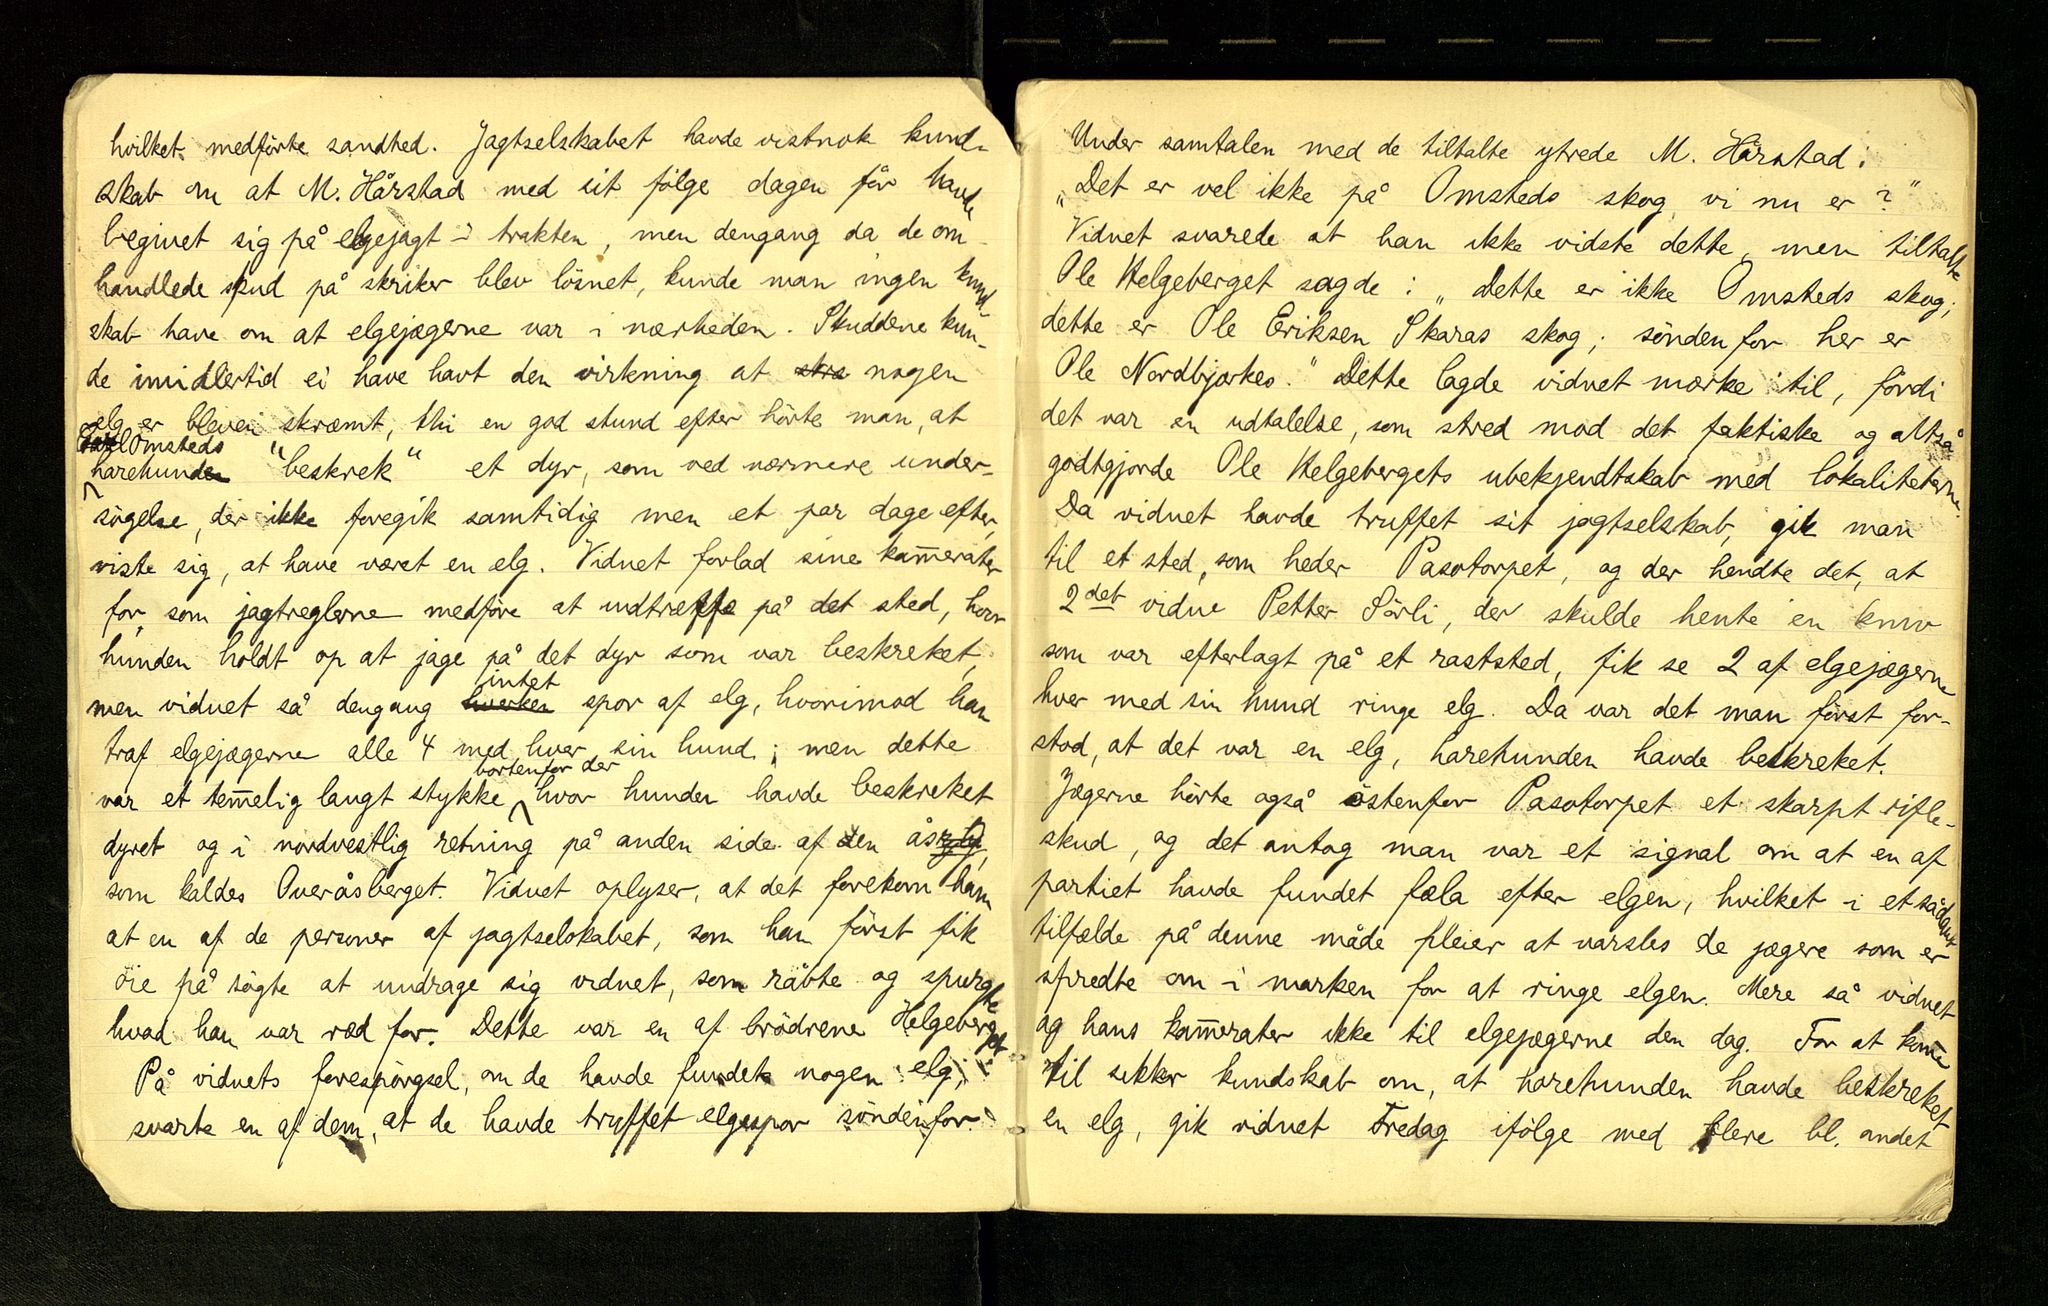 hvilket medførte sandhed. Jagtselskabet havde vistnok kund-
skab om at M. Hårstad med sit følge dagen før havde
begivet sig på elgejagt i trakten, men dengang da de om-
handlede skud på skriker blev løsnet, kunde man ingen kund-
skab have om at elgejægerne var i nærheden. Skuddene kun-
de imidlertid ei have havt den virkning at skra nogen
elg er bleven skræmt, thi en god stund efter hørte man, at
Omsteds
harehunden "beskrek" et dyr, som ved nærmere under-
søgelse, der ikke foregik samtidig men et par dage efter,
viste sig, at have været en elg. Vidnet forlod sine kam̄erater
for, som jagtreglerne medføre at udtræffe på det sted, hvor
hunden holdt op at jage på det dyr som var beskreket,
intet
men vidnet så dengang hverken spor af elg, hvorimod han
traf elgejægerne alle 4 med hver sin hund; men dette
bortenfor der
var et tem̄elig langt stykke hvor hunden havde beskreket
dyret og i nordvestlig retning på anden side af den ås
som kaldes Overåsberget. Vidnet oplyser, at det forekom ham
at en af de personer af jagtselskabet, som han først fik
øie på søgte at undrage sig vidnet, som råbte og spurgte
hvad han var ræd for. Dette var en af brødrene Helgeberget.
På vidnets forespørgsel, om de havde fundet nogen elg,
svarte en af dem, at de havde truffet elgespor søndenfor.
Under samtalen med de tiltalte ytrede M. Hårstad:
„Det er vel ikke på Omsteds skog vi nu er?"
Vidnet svarede at han ikke vidste dette, men tiltalte
Ole Helgeberget sagde: „Dette er ikke Omsteds skog;
dette er Ole Eriksen Skaras skog; søndenfor her er
Ole Nordbjørkes." Dette lagde vidnet mærke til, fordi
det var en udtalelse, som stred mod det faktiske og altså
godtgjorde Ole Helgebergets ubekjendtskab med lokaliteterne.
Da vidnet havde truffet sit jagtselskab, gik man
til et sted, som heder Pasotorpet, og der hendte det, at
2det vidne Petter Sörli, der skulde hente en kniv
som var efterlagt på et raststed, fik se 2 af elgejægerne
hver med sin hund ringe elg. Da var det man først for-
stod, at det var en elg, harehunden havde beskreket.
Jægerne hørte også østenfor Pasotorpet et skarpt rifle-
skud, og det antog man var et signal om at en af
partiet havde fundet fæla efter elgen, hvilket i et sådant
tilfælde på denne måde pleier at varsles de jægere som er
spredte om i marken for at ringe elgen. Mere så vidnet
og hans kam̄erater ikke til elgejægerne den dag. For at kom̄e
til sikker kundskab om, at harehunden havde beskreket
en elg, gik vidnet Fredag ifølge med flere bl. andet